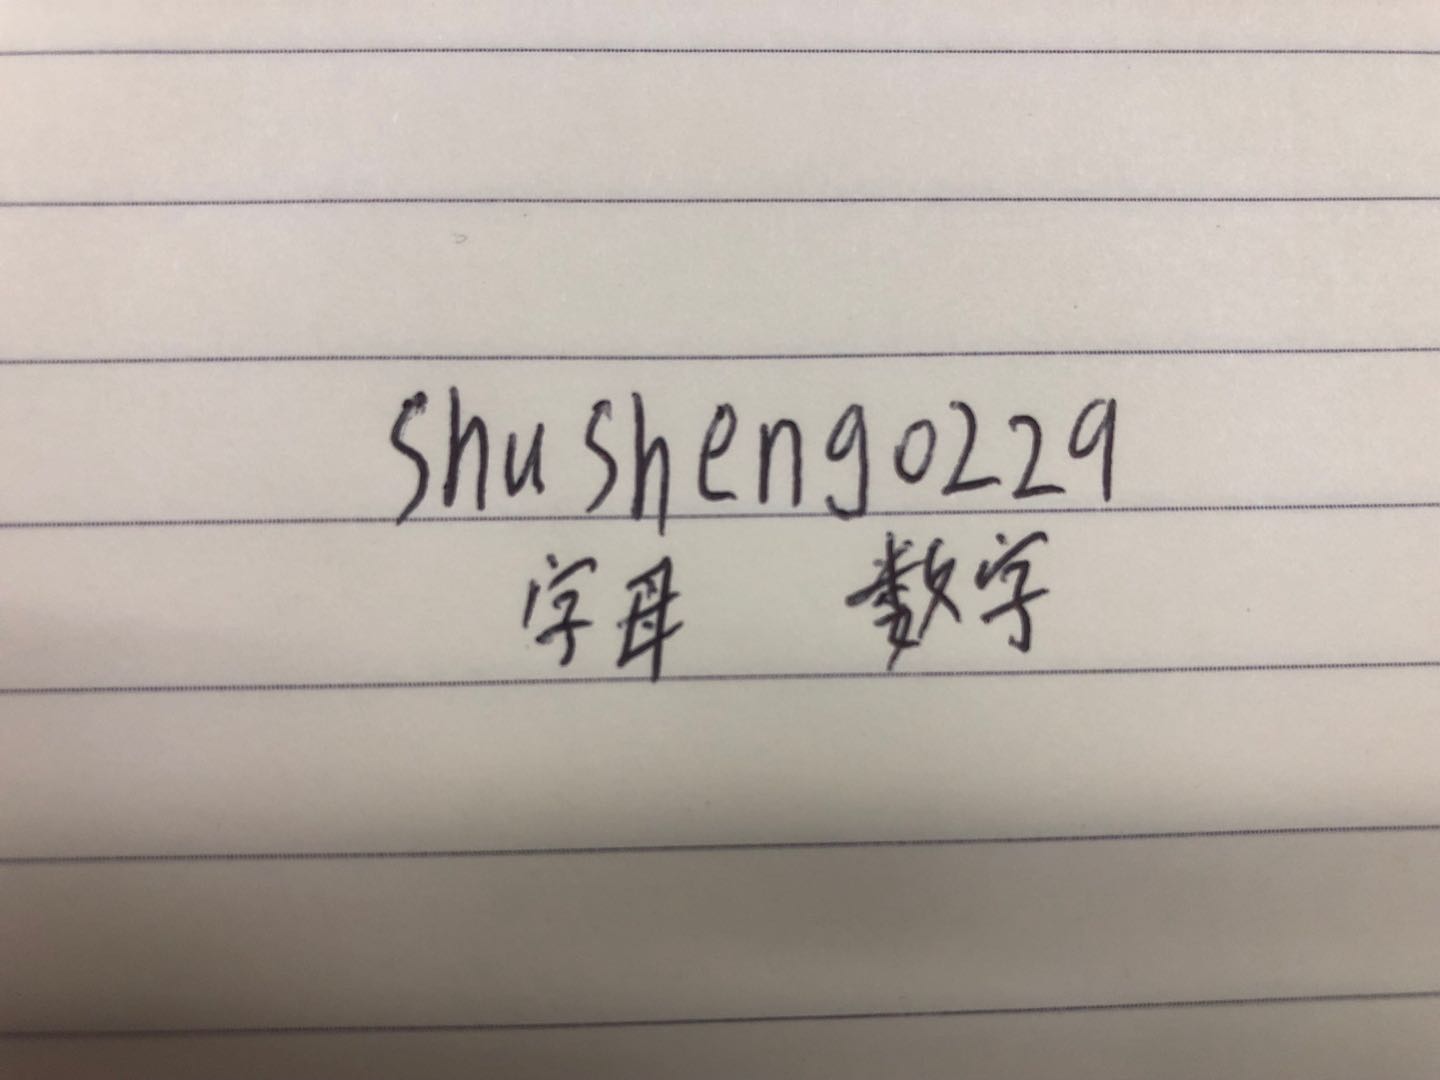 shusheng0229
字母 数字